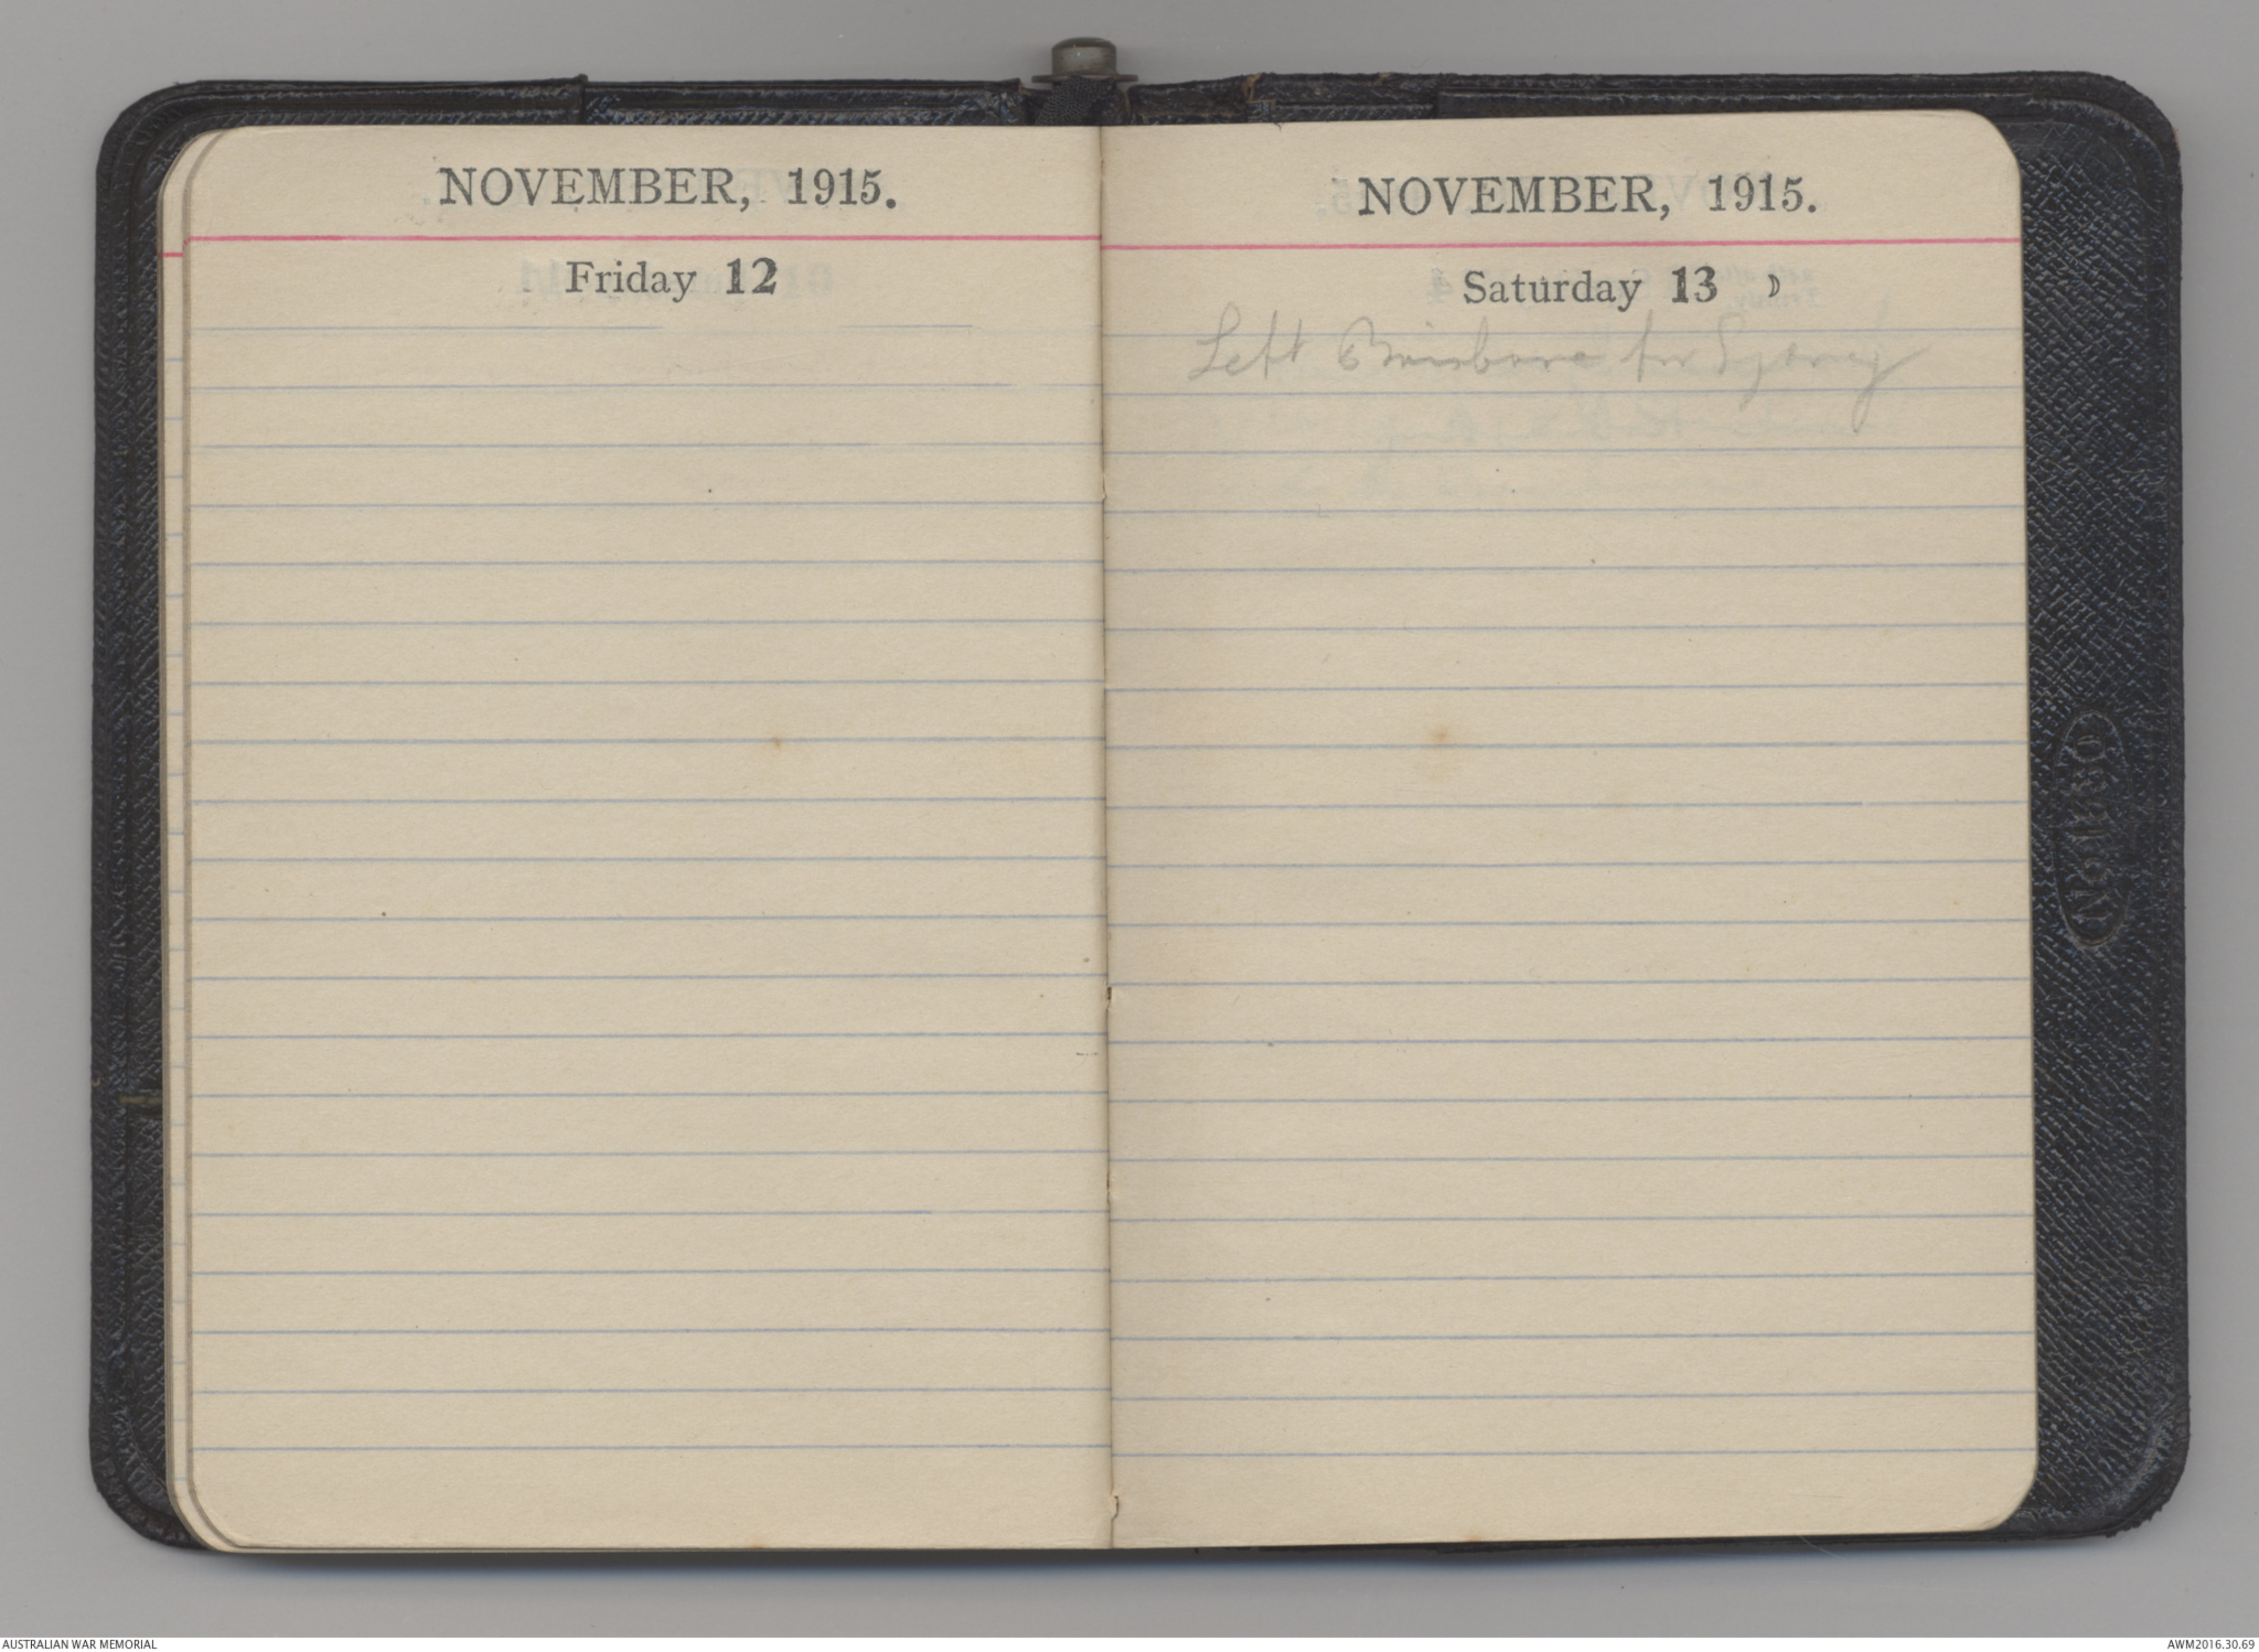 NOVEMBER, 1915.
Friday 12
NOVEMBER, 1915.
Saturday 13
Left Brisbane for Sydney
AUSTRALIAN WAR MEMORIAL
AWM2016.30.69